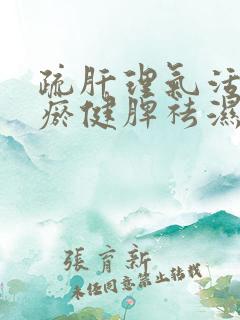 疏肝理氣活
瘀健脾祛濕
張育新
未任同意禁止转载